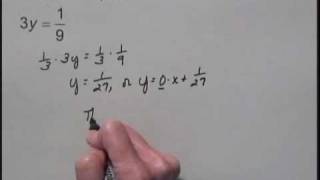 3y = 1/9
1/3 · 3y = 1/3 · 1/9
y = 1/27, or y = 0 · x + 1/27